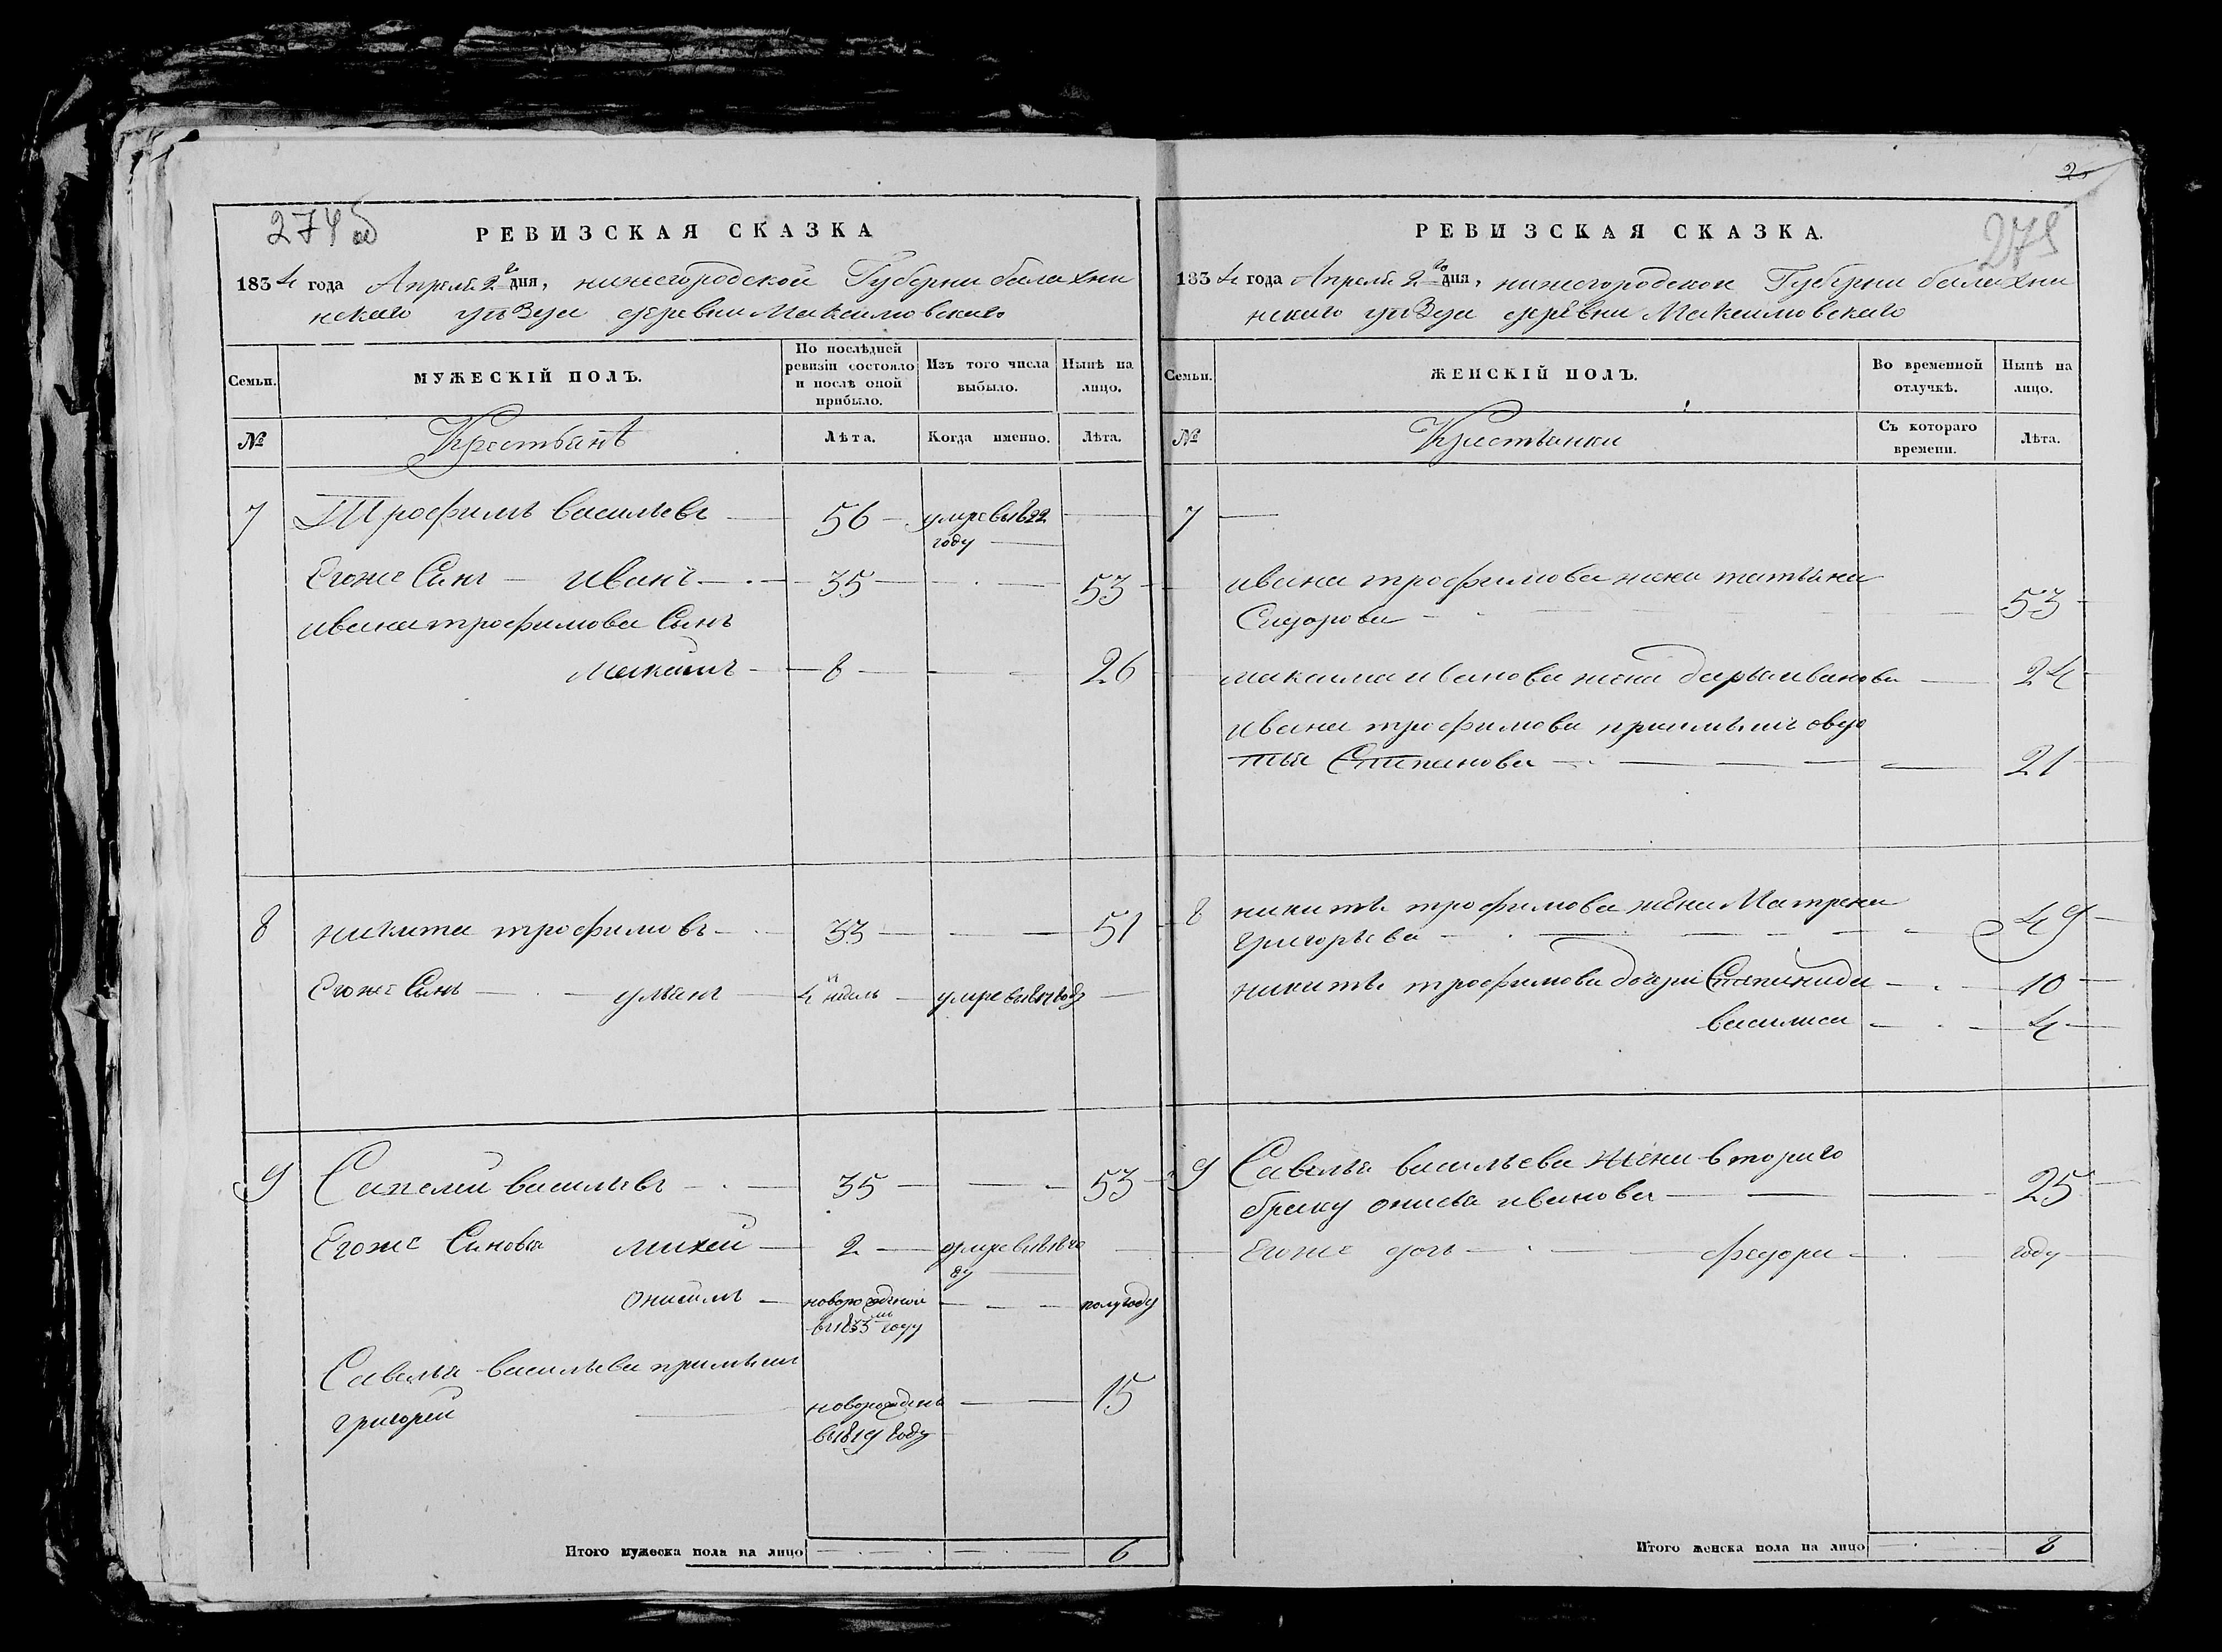 274об
РЕВИЗСКАЯ СКАЗКА
1834 года Апреля 2го дня, нижегородской Губерни балахни
нскаго уъзда деревни Максимовскаго
Семьи.
МУЖЕСКІЙ ПОЛЪ.
По послѣдней ревизіи состояло и послѣ оной прибыло.
Изъ того числа выбыло.
Нынѣ на лицо.
№
Крестьянѣ
Лѣта.
Когда именно.
Лѣта.
7 Трофимъ васильевъ 56 умре въ 1822
году
Егоже Сынъ иванъ 35 53
ивана трофимова Сынъ
Максимъ 8 26
8 никита трофимовъ 33 51
Егоже Сынъ ульянъ 4 недель умре въ году
9 Савелей васильевъ 35 53
Егоже Синовья михей 2 умре въ
онисимъ новорожденной полугоду
въ 1833 году
Савелья васильева приимышъ
григорей новорожденъ 15
въ 1819 году
Итого мужеска пола на лицо 6
275
РЕВИЗСКАЯ СКАЗКА.
1834 года Апреля 2го дня, нижегородской Губерни балахни
нскаго уъзда деревни Максимовскаго
Семьи.
ЖЕНСКІЙ ПОЛЪ.
Во временной отлучкѣ.
Нынѣ на лицо.
№
Крестьянки
Съ котораго времени.
Лѣта.
7
ивана трофимова жена татьяна
Сидорова 53
максима иванова жена дарья иванова 24
ивана трофимова приимышъ овдо
тья Степанова 21
8 никиты трофимова жена Матрена
григорьева 49
никиты трофимова дочери Степанида 10
василиса 4
9 Савелья васильева жена втораго
браку онисья иванова 25
Егоже дочь федора году
Итого женска пола на лицо 8